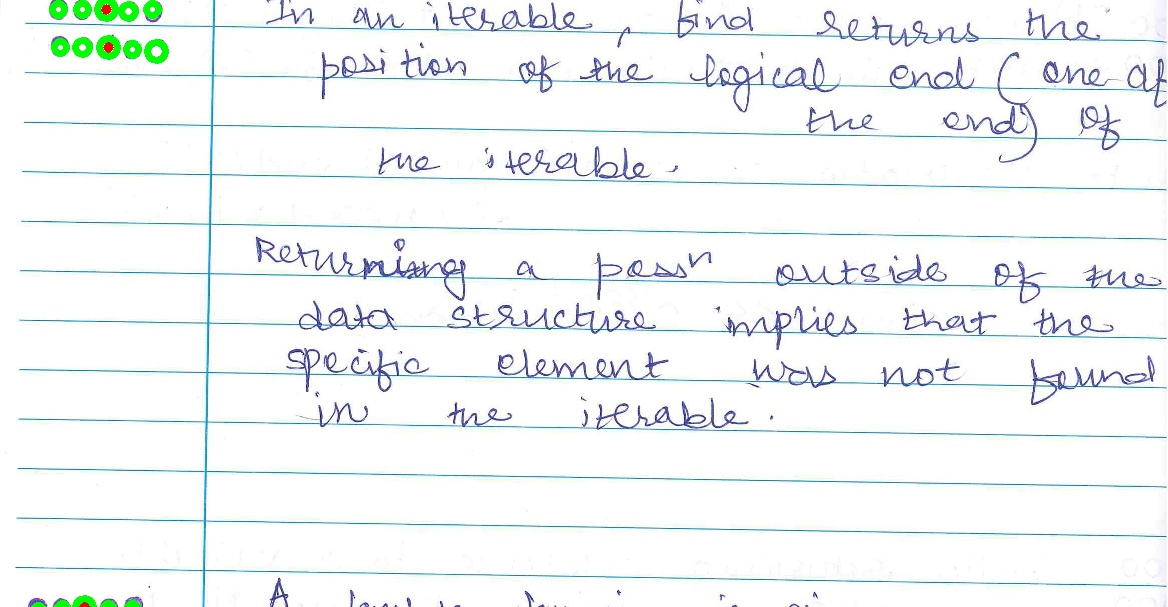 In an iterable, find returns the
position of the logical end (one af
the end) of
the iterable.
Returning a possn outside of the
data structure implies that the
specific element was not found
in the iterable.
A